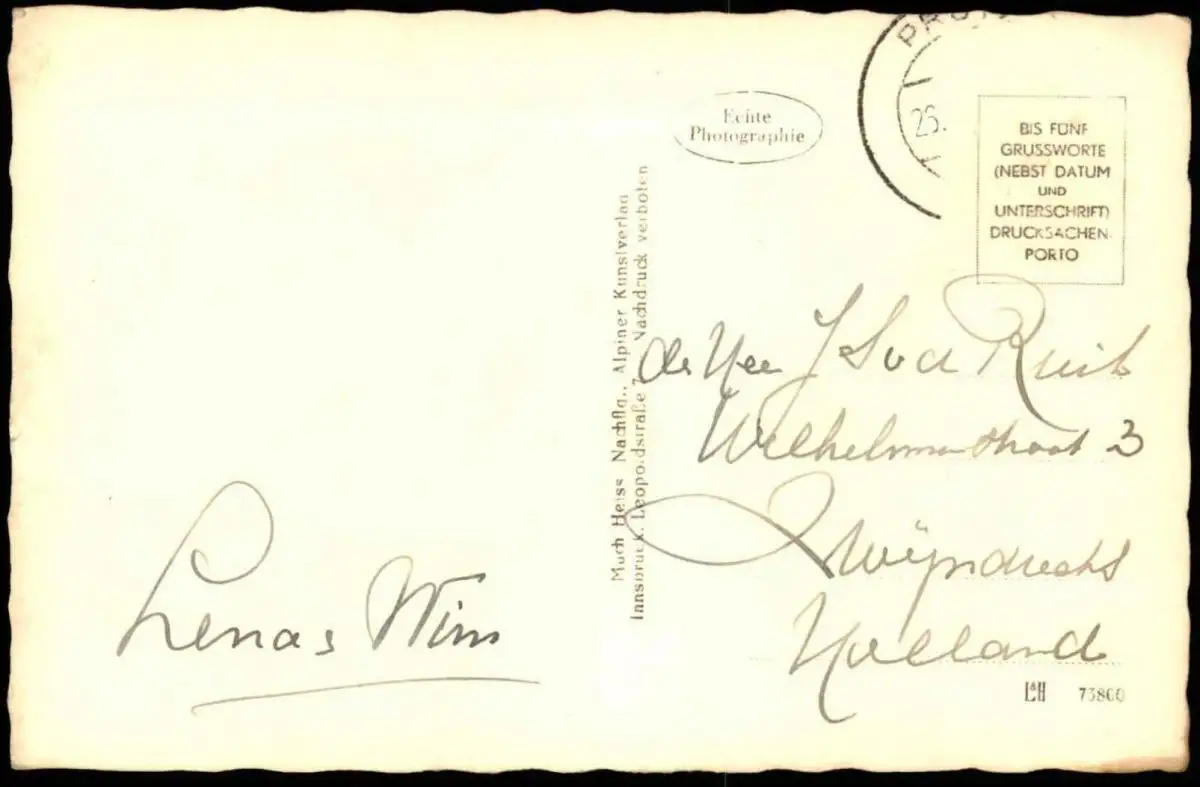 Echte
Photographie
25.
BIS FÜNF
GRUSSWORTE
(NEBST DATUM
UND
UNTERSCHRIFT)
DRUCKSACHEN-
PORTO
Much Heiss Nachflg., Alpiner Kunstverlag
Innsbruck, Leopoldstraße 7 Nachdruck verboten
J S v d Ruit
Wilhelminastraat 3
Zwijndrecht
Holland
Wim
L&H 73860